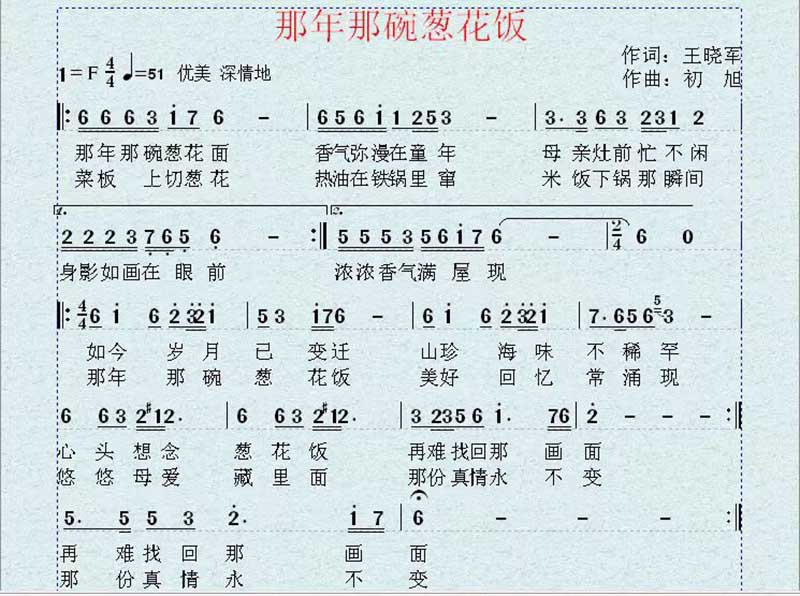 那年那碗葱花饭
作词：王晓军
1=F 4/4 ♩=51 优美 深情地
作曲：初 旭
6 6 6 3 i 7 6 - 6 5 6 i 1 2 5 3 - 3· 3 6 3 2 3 1 2
那年那碗葱花面 香气弥漫在童年 母亲灶前忙不闲
菜板 上切葱花 热油在铁锅里窜 米饭下锅那瞬间
1. 2.
2 2 2 3 7 6 5 6 - 5 5 5 3 5 6 i 7 6 - 2/4 6 0
身影如画在眼前 浓浓香气满屋现
4/4 6 i 6 2 3 2 i 5 3 i 7 6 - 6 i 6 2 3 2 i 7· 6 5 6 5 3 -
如今 岁月已变迁 山珍 海味不稀罕
那年 那碗葱花饭 美好 回忆常涌现
6 6 3 2 #1 2· 6 6 3 2 #1 2· 3 2 3 5 6 i· 7 6 2 - - -
心头想念 葱花饭 再难找回那画面
悠悠母爱 藏里面 那份真情永不变
5· 5 5 3 2· i 7 6 - - -
再难找回那画面
那份真情永不变